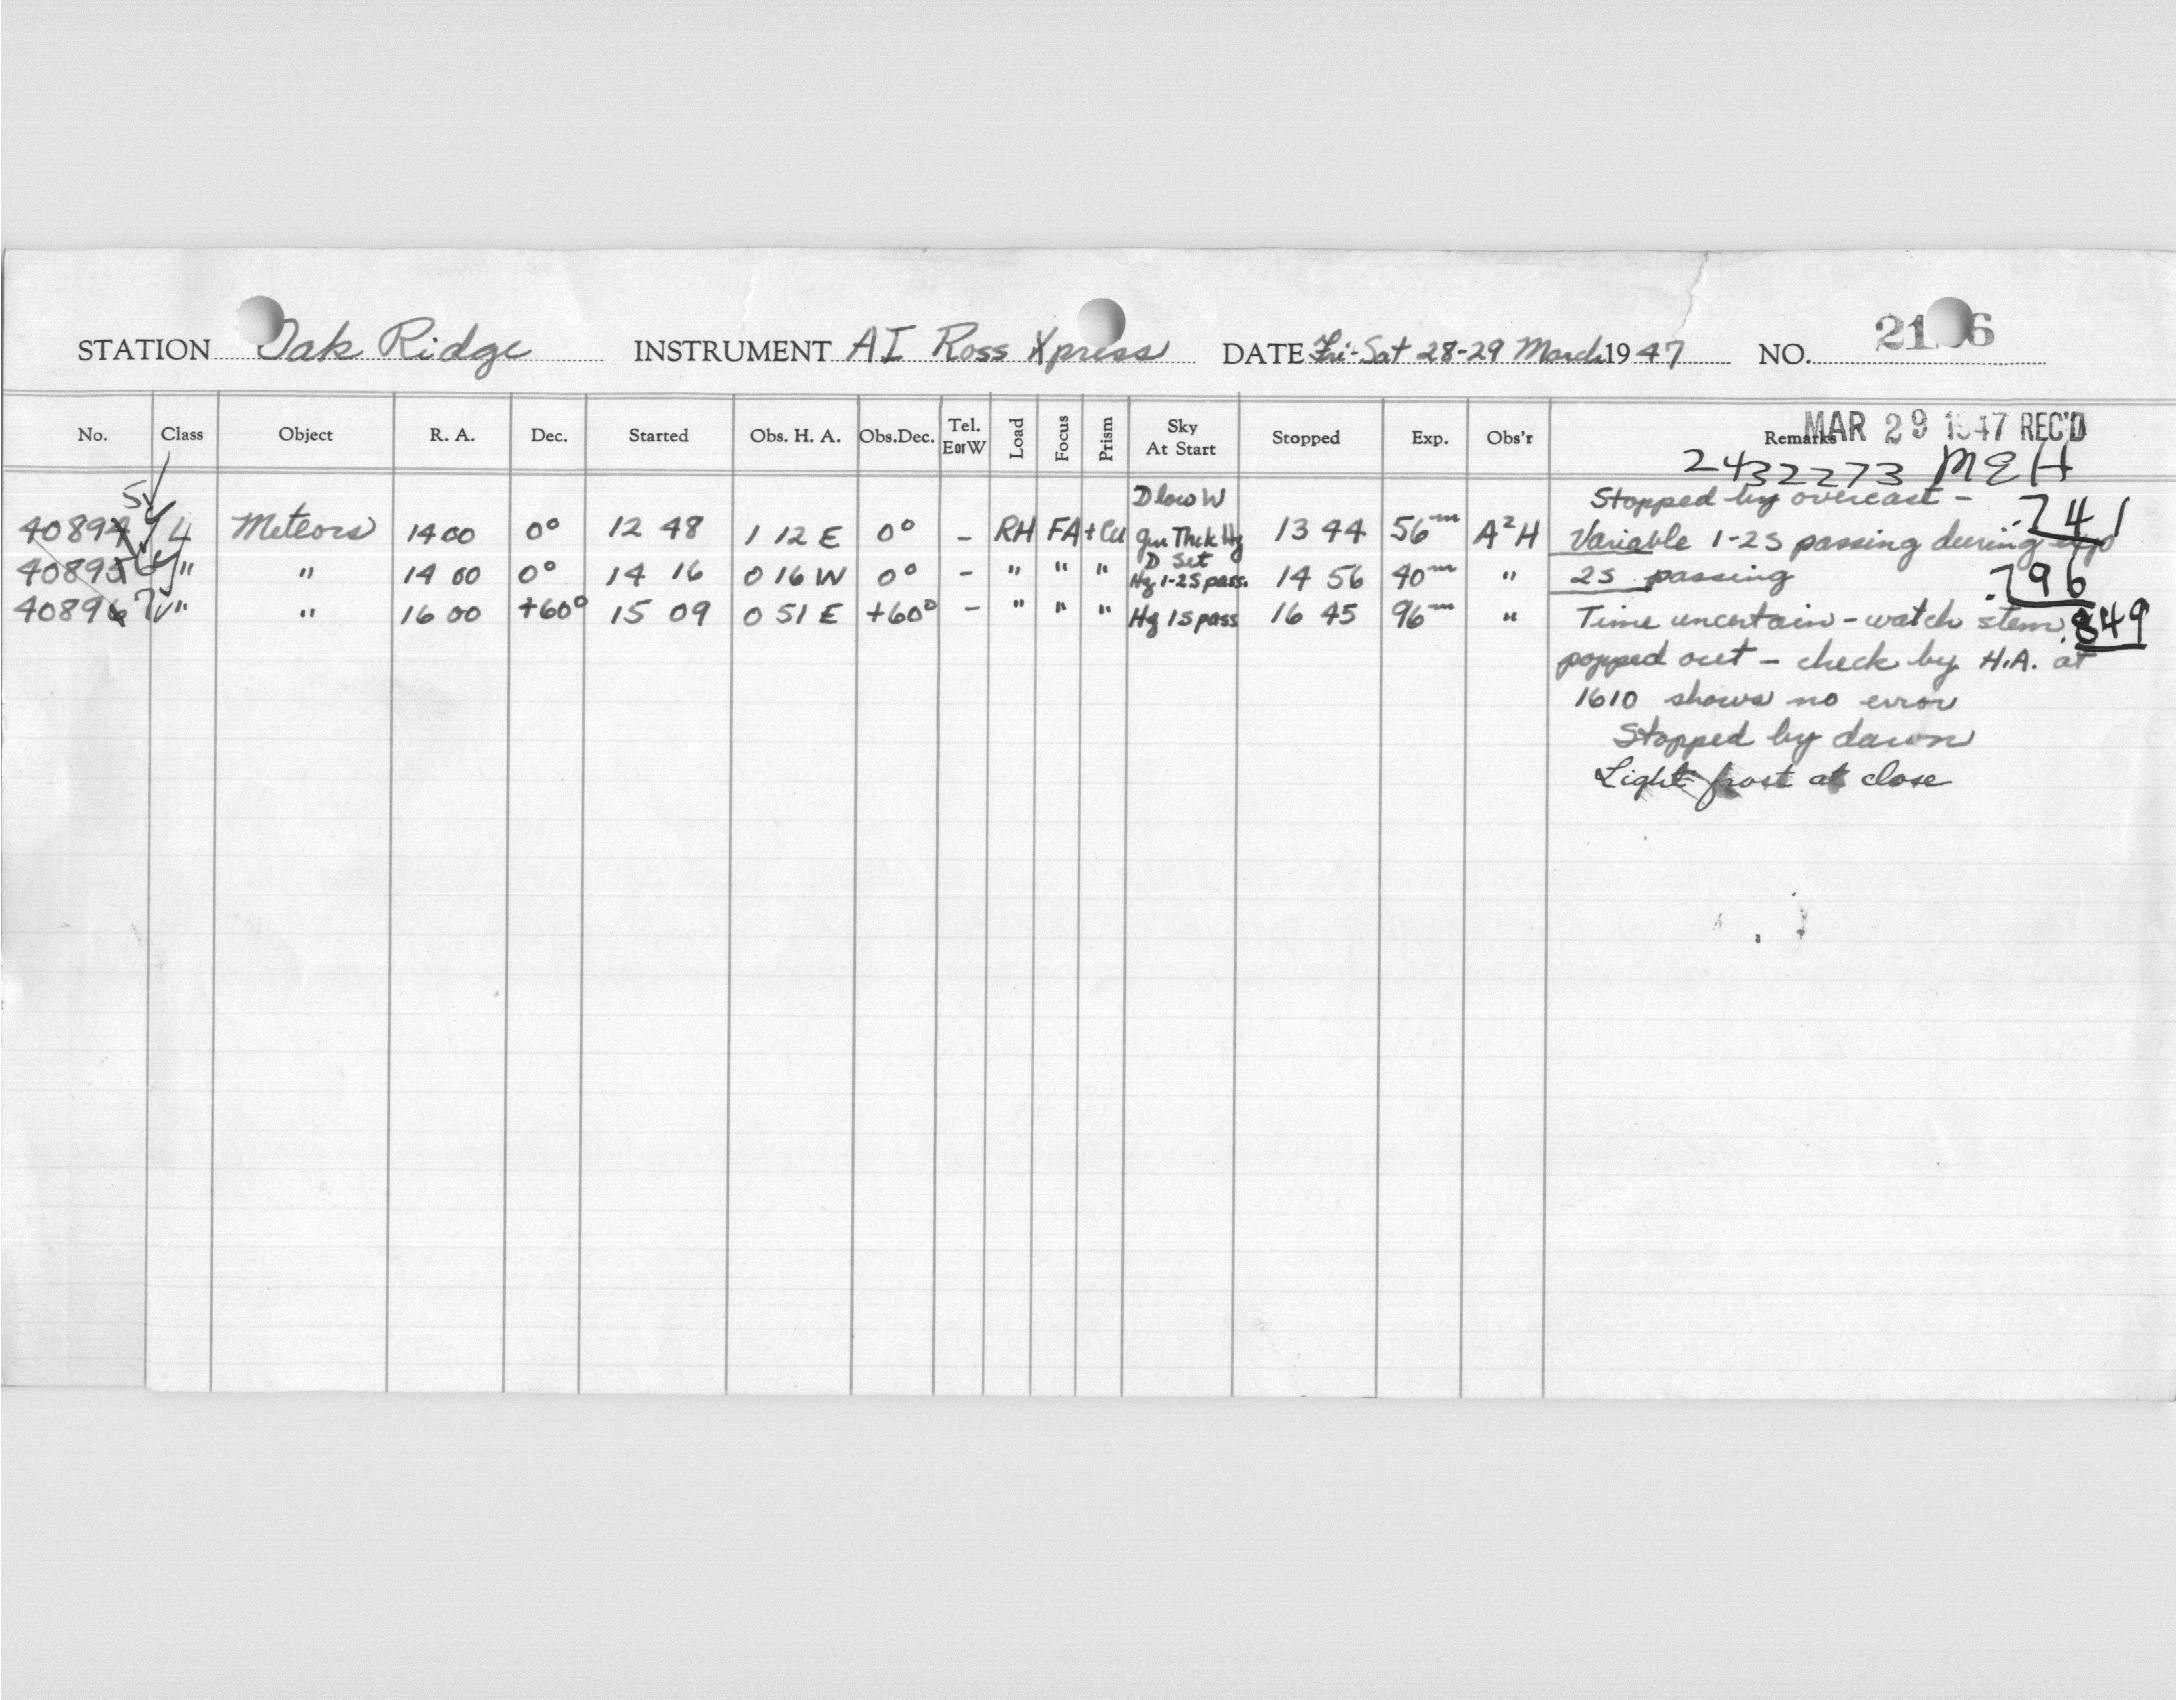 STATION Oak Ridge INSTRUMENT AI Ross Xpress DATE Fri-Sat 28-29 March 1947 NO. 21 6
No. Class Object R. A. Dec. Started Obs. H. A. Obs.Dec. Tel. E or W Load Focus Prism Sky At Start Stopped Exp. Obs'r Remarks
MAR 29 1947 REC'D
2432273 MEH
D low W Stopped by overcast - .741
40894 5 L Meteors 14 00 0° 12 48 1 12 E 0° - RH FA +Cu Thick Hg 13 44 56m A²H Variable 1-2S passing during exp
D Set
40895 6 " " 14 00 0° 14 16 0 16 W 0° - " " " Hg 1-2S pass. 14 56 40m " 2S passing .796
40896 7 " " 16 00 +60° 15 09 0 51 E +60° - " " " Hg 1S pass 16 45 96m " Time uncertain - watch stem .849
popped out - check by H.A. at
1610 shows no error
Stopped by dawn
Light frost at close